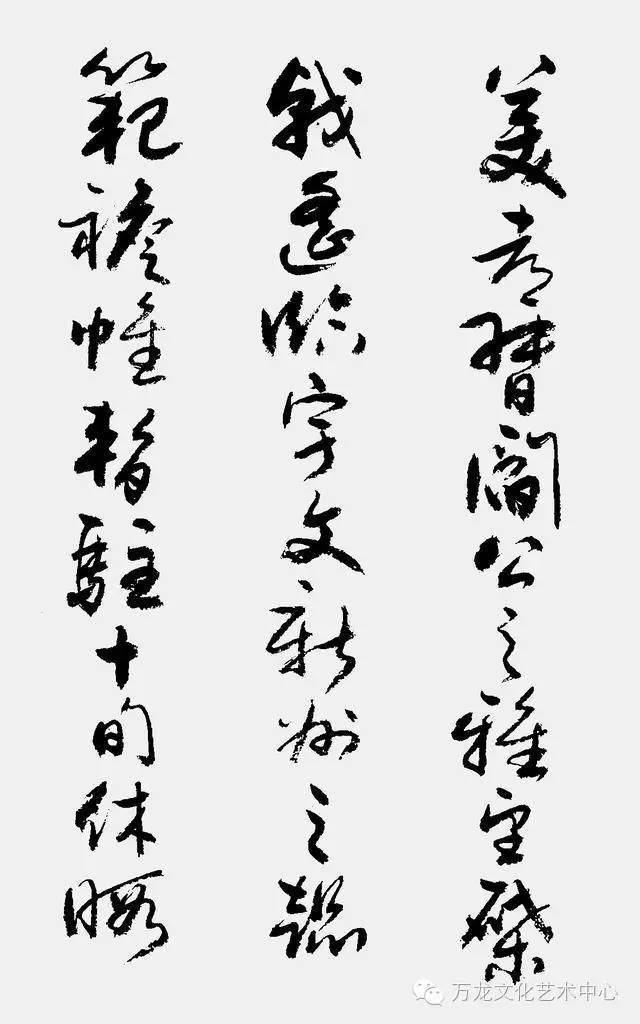 美都督閻公之雅望棨
戟遥臨宇文新州之懿
範襜帷暫駐十旬休暇
万龙文化艺术中心